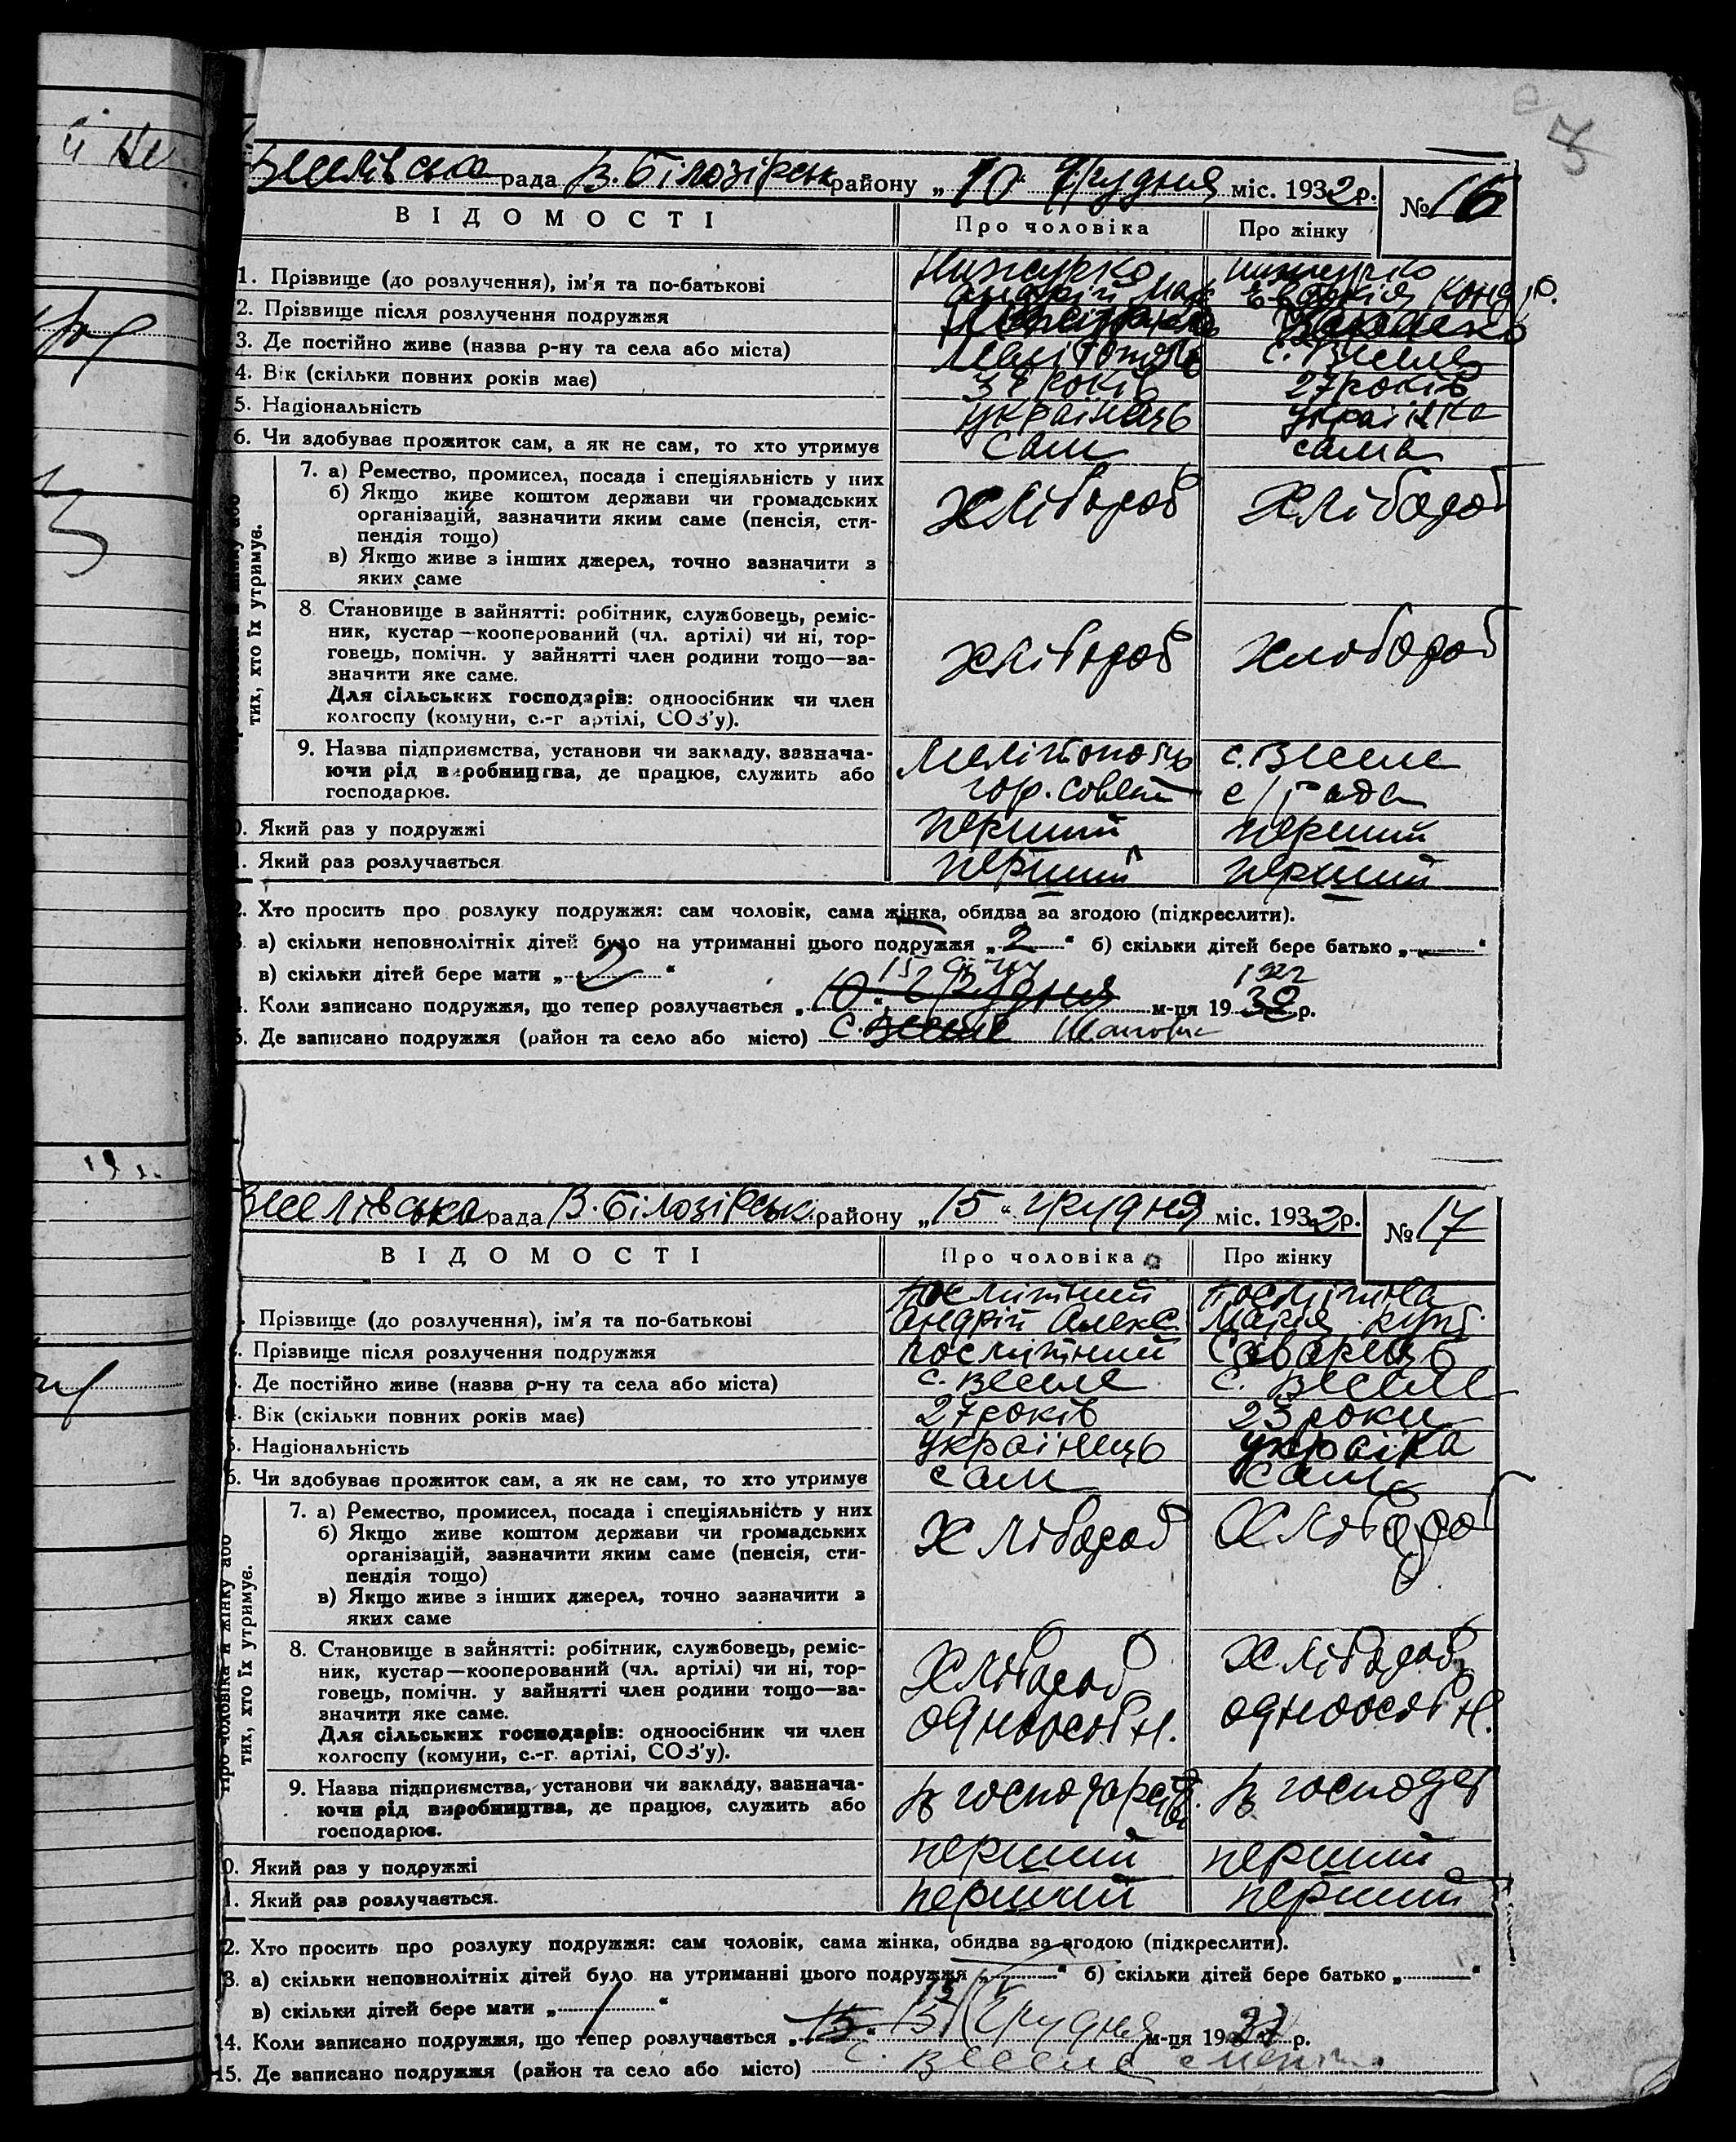 Веселівська рада В. Білозірськ району „10“ Грудня міс. 1932 р. № 16
ВІДОМОСТІ Про чоловіка Про жінку
1. Прізвище (до розлучення), ім'я та по-батькові Андрій Евдокія Конд р.
2. Прізвище після розлучення подружжя
3. Де постійно живе (назва р-ну та села або міста) Мелітополь с. Веселе
4. Вік (скільки повних років має) 37 років 27 років
5. Національність українець українка
6. Чи здобуває прожиток сам, а як не сам, то хто утримує сам сама
тих, хто їх утримує.
7. а) Ремество, промисел, посада і спеціяльність у них
б) Якщо живе коштом держави чи громадських
організацій, зазначити яким саме (пенсія, сти-
пендія тощо)
в) Якщо живе з інших джерел, точно зазначити з
яких саме
хлібороб хлібороб
8. Становище в зайнятті: робітник, службовець, реміс-
ник, кустар—кооперований (чл. артілі) чи ні, тор-
говець, помічн. у зайнятті член родини тощо—за-
значити яке саме.
Для сільських господарів: одноосібник чи член
колгоспу (комуни, с.-г артілі, СОЗ'у).
хлібороб хлобороб
9. Назва підприємства, установи чи закладу, зазнача-
ючи рід виробництва, де працює, служить або
господарює.
Мелітополь гор. совет с. Веселе с/рада
0. Який раз у подружжі перший перший
1. Який раз розлучається перший перший
2. Хто просить про розлуку подружжя: сам чоловік, сама жінка, обидва за згодою (підкреслити).
3. а) скільки неповнолітніх дітей було на утриманні цього подружжя „2“ б) скільки дітей бере батько „—“
в) скільки дітей бере мати „2“
15 1922
4. Коли записано подружжя, що тепер розлучається „10“ грудня м-ця 1932 р.
5. Де записано подружжя (район та село або місто) с. Веселе
Веселівська рада В. Білозірськ. району „15“ грудня міс. 1932 р. № 17
ВІДОМОСТІ Про чоловіка Про жінку
Прізвище (до розлучення), ім'я та по-батькові Посмітний Андрій Алекс. Посмітна Марія
Прізвище після розлучення подружжя посмітний Сіварець
Де постійно живе (назва р-ну та села або міста) с. Веселе с. Веселе
Вік (скільки повних років має) 27 років 23 роки
Національність українець україка
6. Чи здобуває прожиток сам, а як не сам, то хто утримує сам сама
Про чоловіка й жінку або
тих, хто їх утримує.
7. а) Ремество, промисел, посада і спеціяльність у них
б) Якщо живе коштом держави чи громадських
організацій, зазначити яким саме (пенсія, сти-
пендія тощо)
в) Якщо живе з інших джерел, точно зазначити з
яких саме
Хлібороб Хлібороб
8. Становище в зайнятті: робітник, службовець, реміс-
ник, кустар—кооперований (чл. артілі) чи ні, тор-
говець, помічн. у зайнятті член родини тощо—за-
значити яке саме.
Для сільських господарів: одноосібник чи член
колгоспу (комуни, с.-г. артілі, СОЗ'у).
Хлібороб одноособн. Хлібороб одноособн.
9. Назва підприємства, установи чи закладу, зазнача-
ючи рід виробництва, де працює, служить або
господарює.
в господарстві в господар
0. Який раз у подружжі перший перший
1. Який раз розлучається. перший перший
2. Хто просить про розлуку подружжя: сам чоловік, сама жінка, обидва за згодою (підкреслити).
3. а) скільки неповнолітніх дітей було на утриманні цього подружжя „—“ б) скільки дітей бере батько „—“
в) скільки дітей бере мати „—“
14. Коли записано подружжя, що тепер розлучається „15“ 15 Грудня м-ця 19 р.
15. Де записано подружжя (район та село або місто) с. Веселе